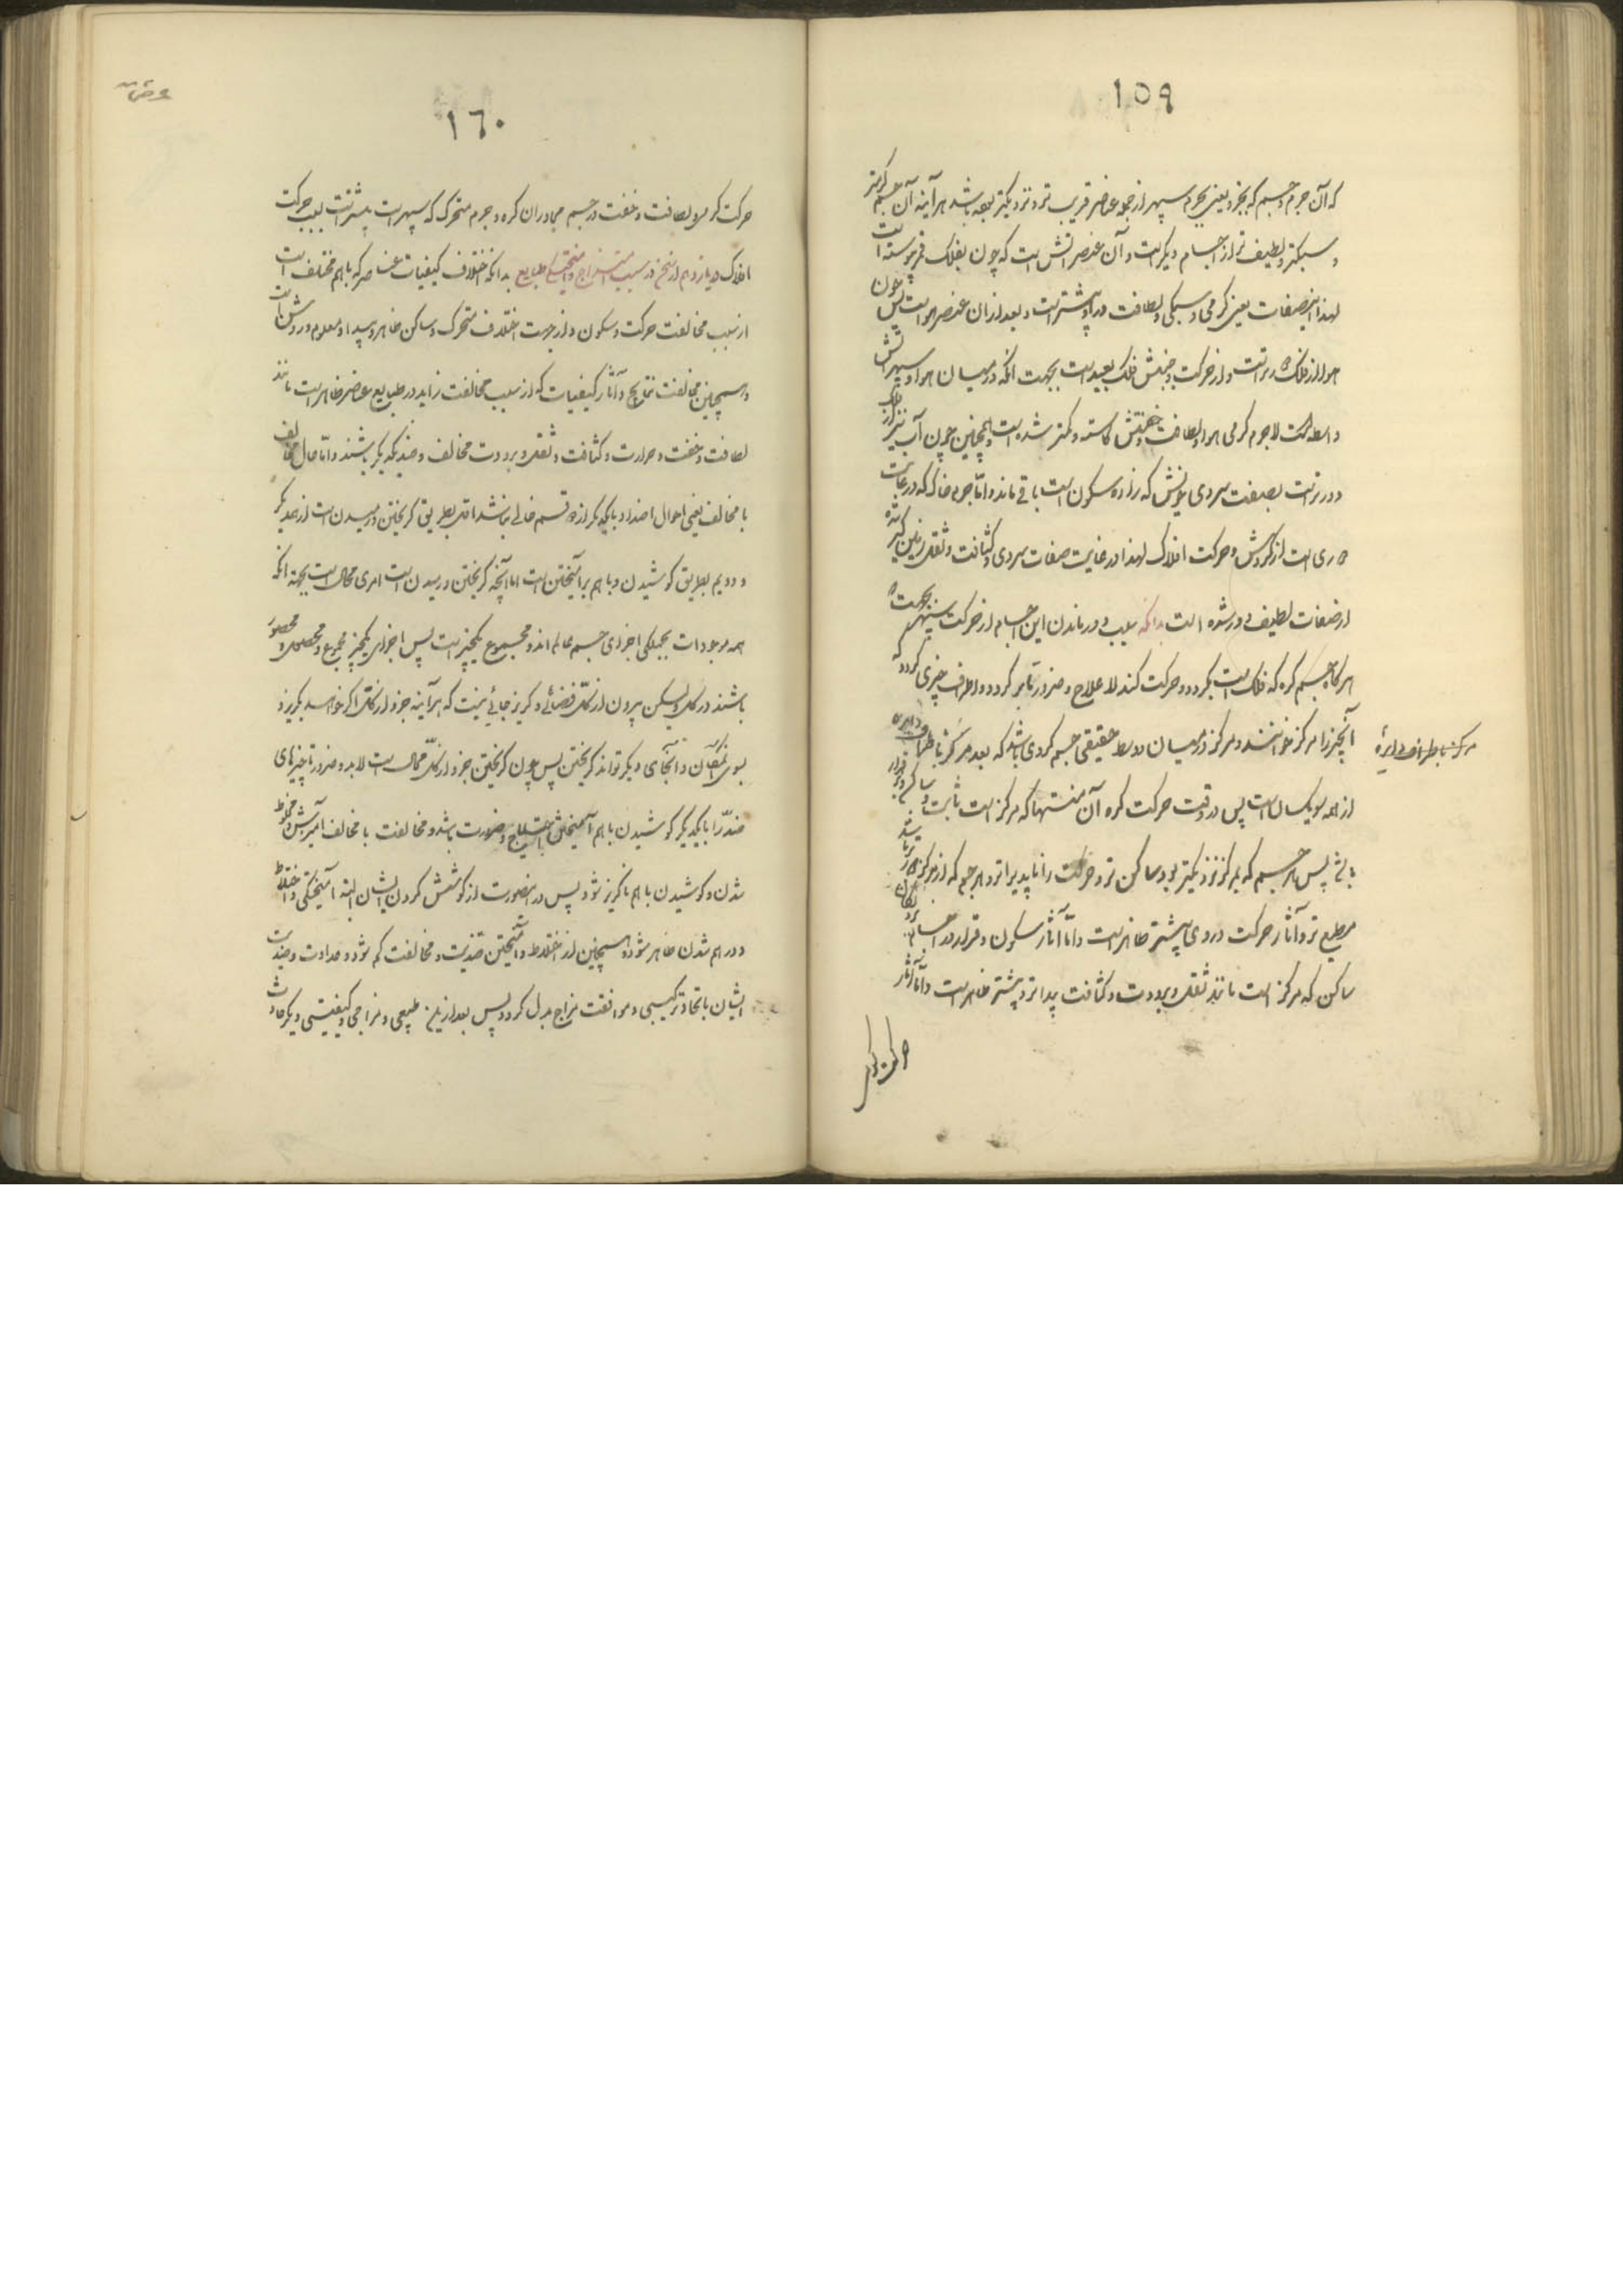 ١٥٩
که آن جرم و جسم که بجزو یعنی بجرم سپهر از جمله عناصر قریب تر و نزدیکتر بوده باشد هر آینه آن جسم گرمتر
و سبکتر و لطیف تر از اجسام دیگر است و آن عنصر آتش است که چون بفلک قمر پیوسته است
لهذا این صفات یعنی گرمی و سبکی و لطافت در او بیشتر است و بعد از ان عنصر هواست پس چون
هوا از فلک دورتر است و از حرکت و جنبش فلک بعید است بجهت آنکه در میان هوا و سپهر آتش
واسطه است لاجرم گرمی هوا و لطافت و خفتش کاسته و کمتر شده است و همچنین چون آب نیز از فلک
دورتر است بصفت سردی خویش که زاده سکون است باقی مانده و اما جرم خاک که در غایت
دوری است از گردش و حرکت افلاک لهذا در غایت صفات سردی و کثافت و ثقل زمین گیر شده
از صفات لطیف دور شده است بدانکه سبب دور ماندن این اجسام از حرکت سپهر بجهت آنکه
هرگاه جسم کره که فلک است بگردد و حرکت کند لا علاج و ضرورتا بر گرد و اطراف چیزی گردد که
آنچیز را مرکز خوانند و مرکز در میان و وسط حقیقی جسم گردی باشد که بعد مرکز با اطراف دایره
مرکز با اطراف دایره
از همه سو یکسان است پس در وقت حرکت کره آن منتها که مرکز است ثابت و ساکن و بر قرار
باشد پس هر جسم که بمرکز نزدیکتر بود ساکن تر و حرکت را ناپذیراتر و هر جسم که از مرکز دورتر باشد
مطیع تر و آثار حرکت در وی بیشتر ظاهر است و اما آثار سکون و قرار در اجسام
ساکن که مرکز است مانند ثقل و برودت و کثافت پیداتر و بیشتر ظاهر است و اما آثار
حرکت کره
١٦٠
حرکت گرم لا لطافت و خفت در جسم مجاوران کره و جرم متحرک که سپهر است بیشتر است بسبب حرکت
افلاک یازدهم از سخن در سبب امتزاج و آمیختگی طبایع بدانکه اختلاف کیفیات عناصر که با هم مختلف است
از سبب مخالفت حرکت و سکون و از جهت اختلاف متحرک و ساکن ظاهر و پیدا و معلوم و روشن است
و همچنین مخالفت نتایج و آثار کیفیات که از سبب مخالفت زاید در طبایع عناصر ظاهر است مانند
لطافت و خفت و حرارت و کثافت و ثقل و برودت مخالف و ضد یکدیگر باشند و اما حال مخالف
با مخالف یعنی احوال اضداد با یکدیگر از دو قسم خالی نباشد اول بطریق گریختن و رمیدن است از همدیگر
و دویم بطریق کوشیدن و با هم برآمیختن است اما آنچه گریختن و رمیدن است امری محال است بجهة آنکه
همه موجودات بجملگی اجزای جسم عالم اند و مجموع یکچیز است پس اجزای یکچیز مجموع و محصور
باشند در کل و لیکن بیرون از کل فضائی و گریز جائی نیست که هر آینه جزو از کل اگر خواهد بگریزد
بسوی آن مکان و آنجای دیگر تواند گریختن پس چون گریختن جزو از کل محال است لابد و ضرورتا چیزهای
ضد را با یکدیگر کوشیدن با هم آمیختن احتیاج و ضرورت باشد و مخالفت با مخالف آمیزش و مخلوط
شدن و کوشیدن با هم ناگریز شود پس در اینصورت از کوشش کردن ایشان البته آمیختگی و اختلاط
و در هم شدن ظاهر شود و همچنین از اختلاط و آمیختن ضدیت و مخالفت کم شود و عداوت و ضدیت
ایشان باتحاد ترکیبی و موافقت مزاج بدل گردد پس بعد از این طبیعی و مزاجی و کیفیتی دیگر حادث